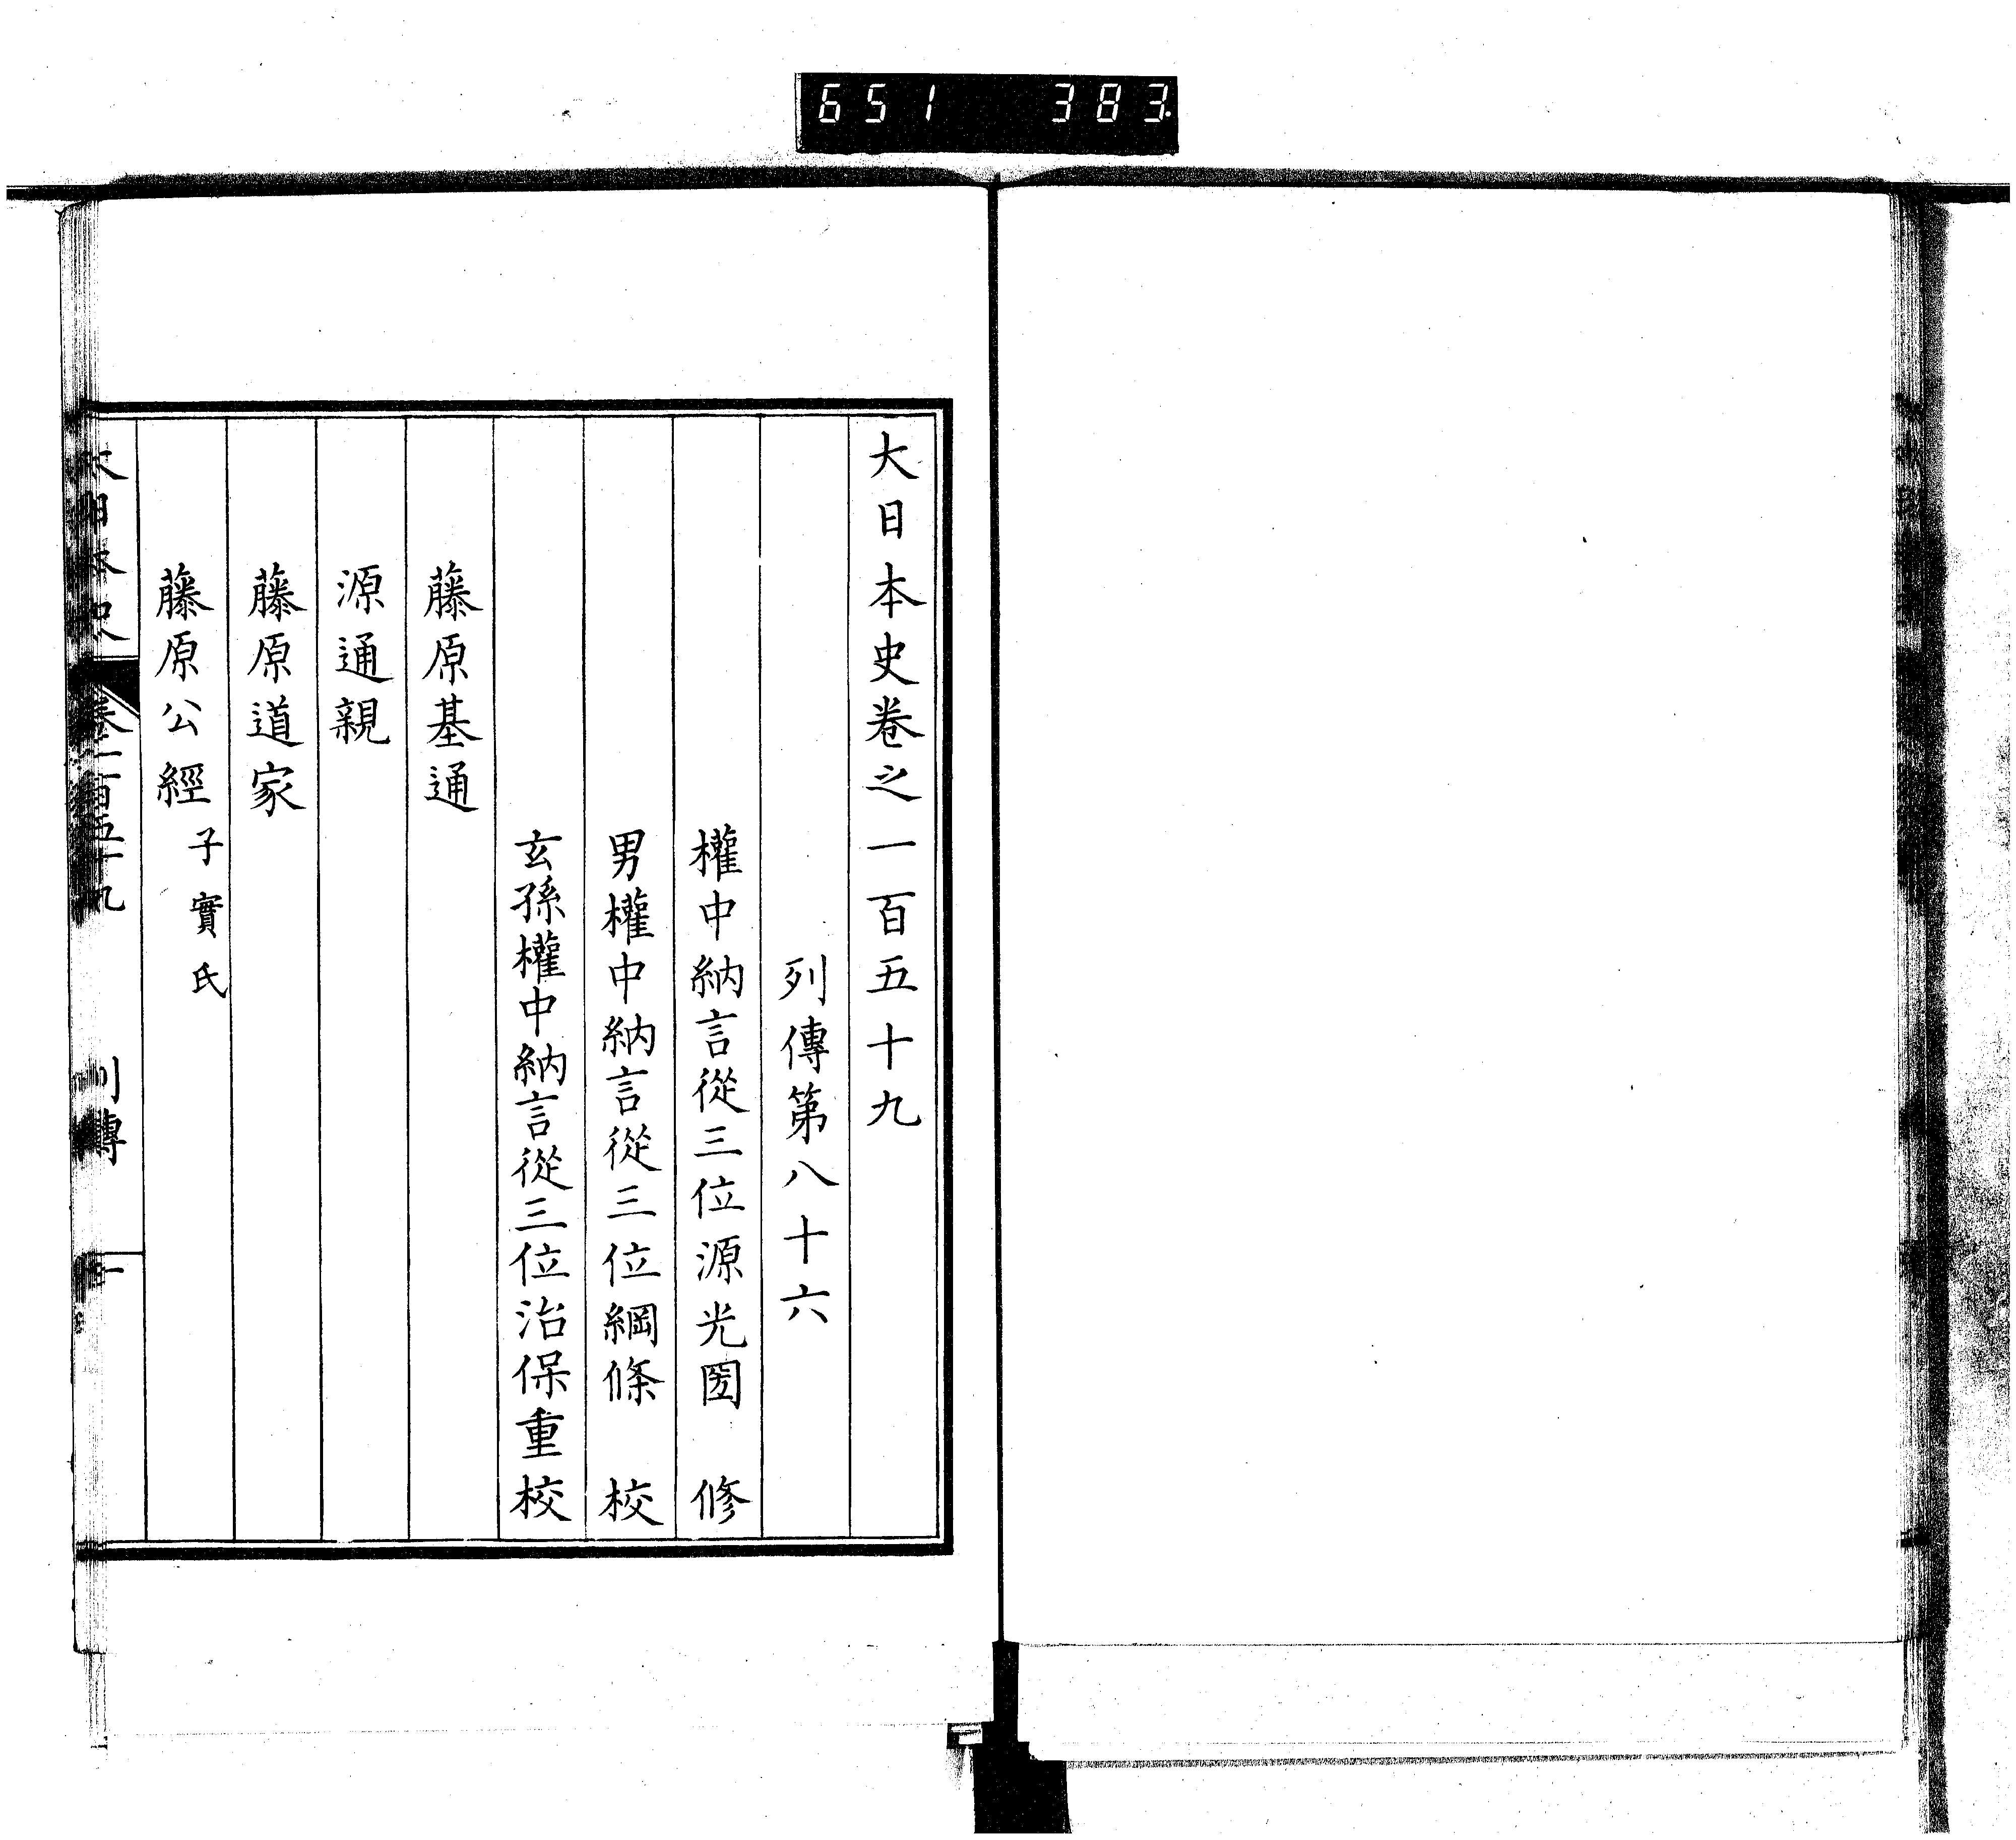 651 383
大日本史卷之一百五十九
列傳第八十六
權中納言從三位源光圀 修
男權中納言從三位綱條 校
玄孫權中納言從三位治保重校
藤原基通
源通親
藤原道家
藤原公經 子實氏
大日本史 卷一百五十九 列傳 一